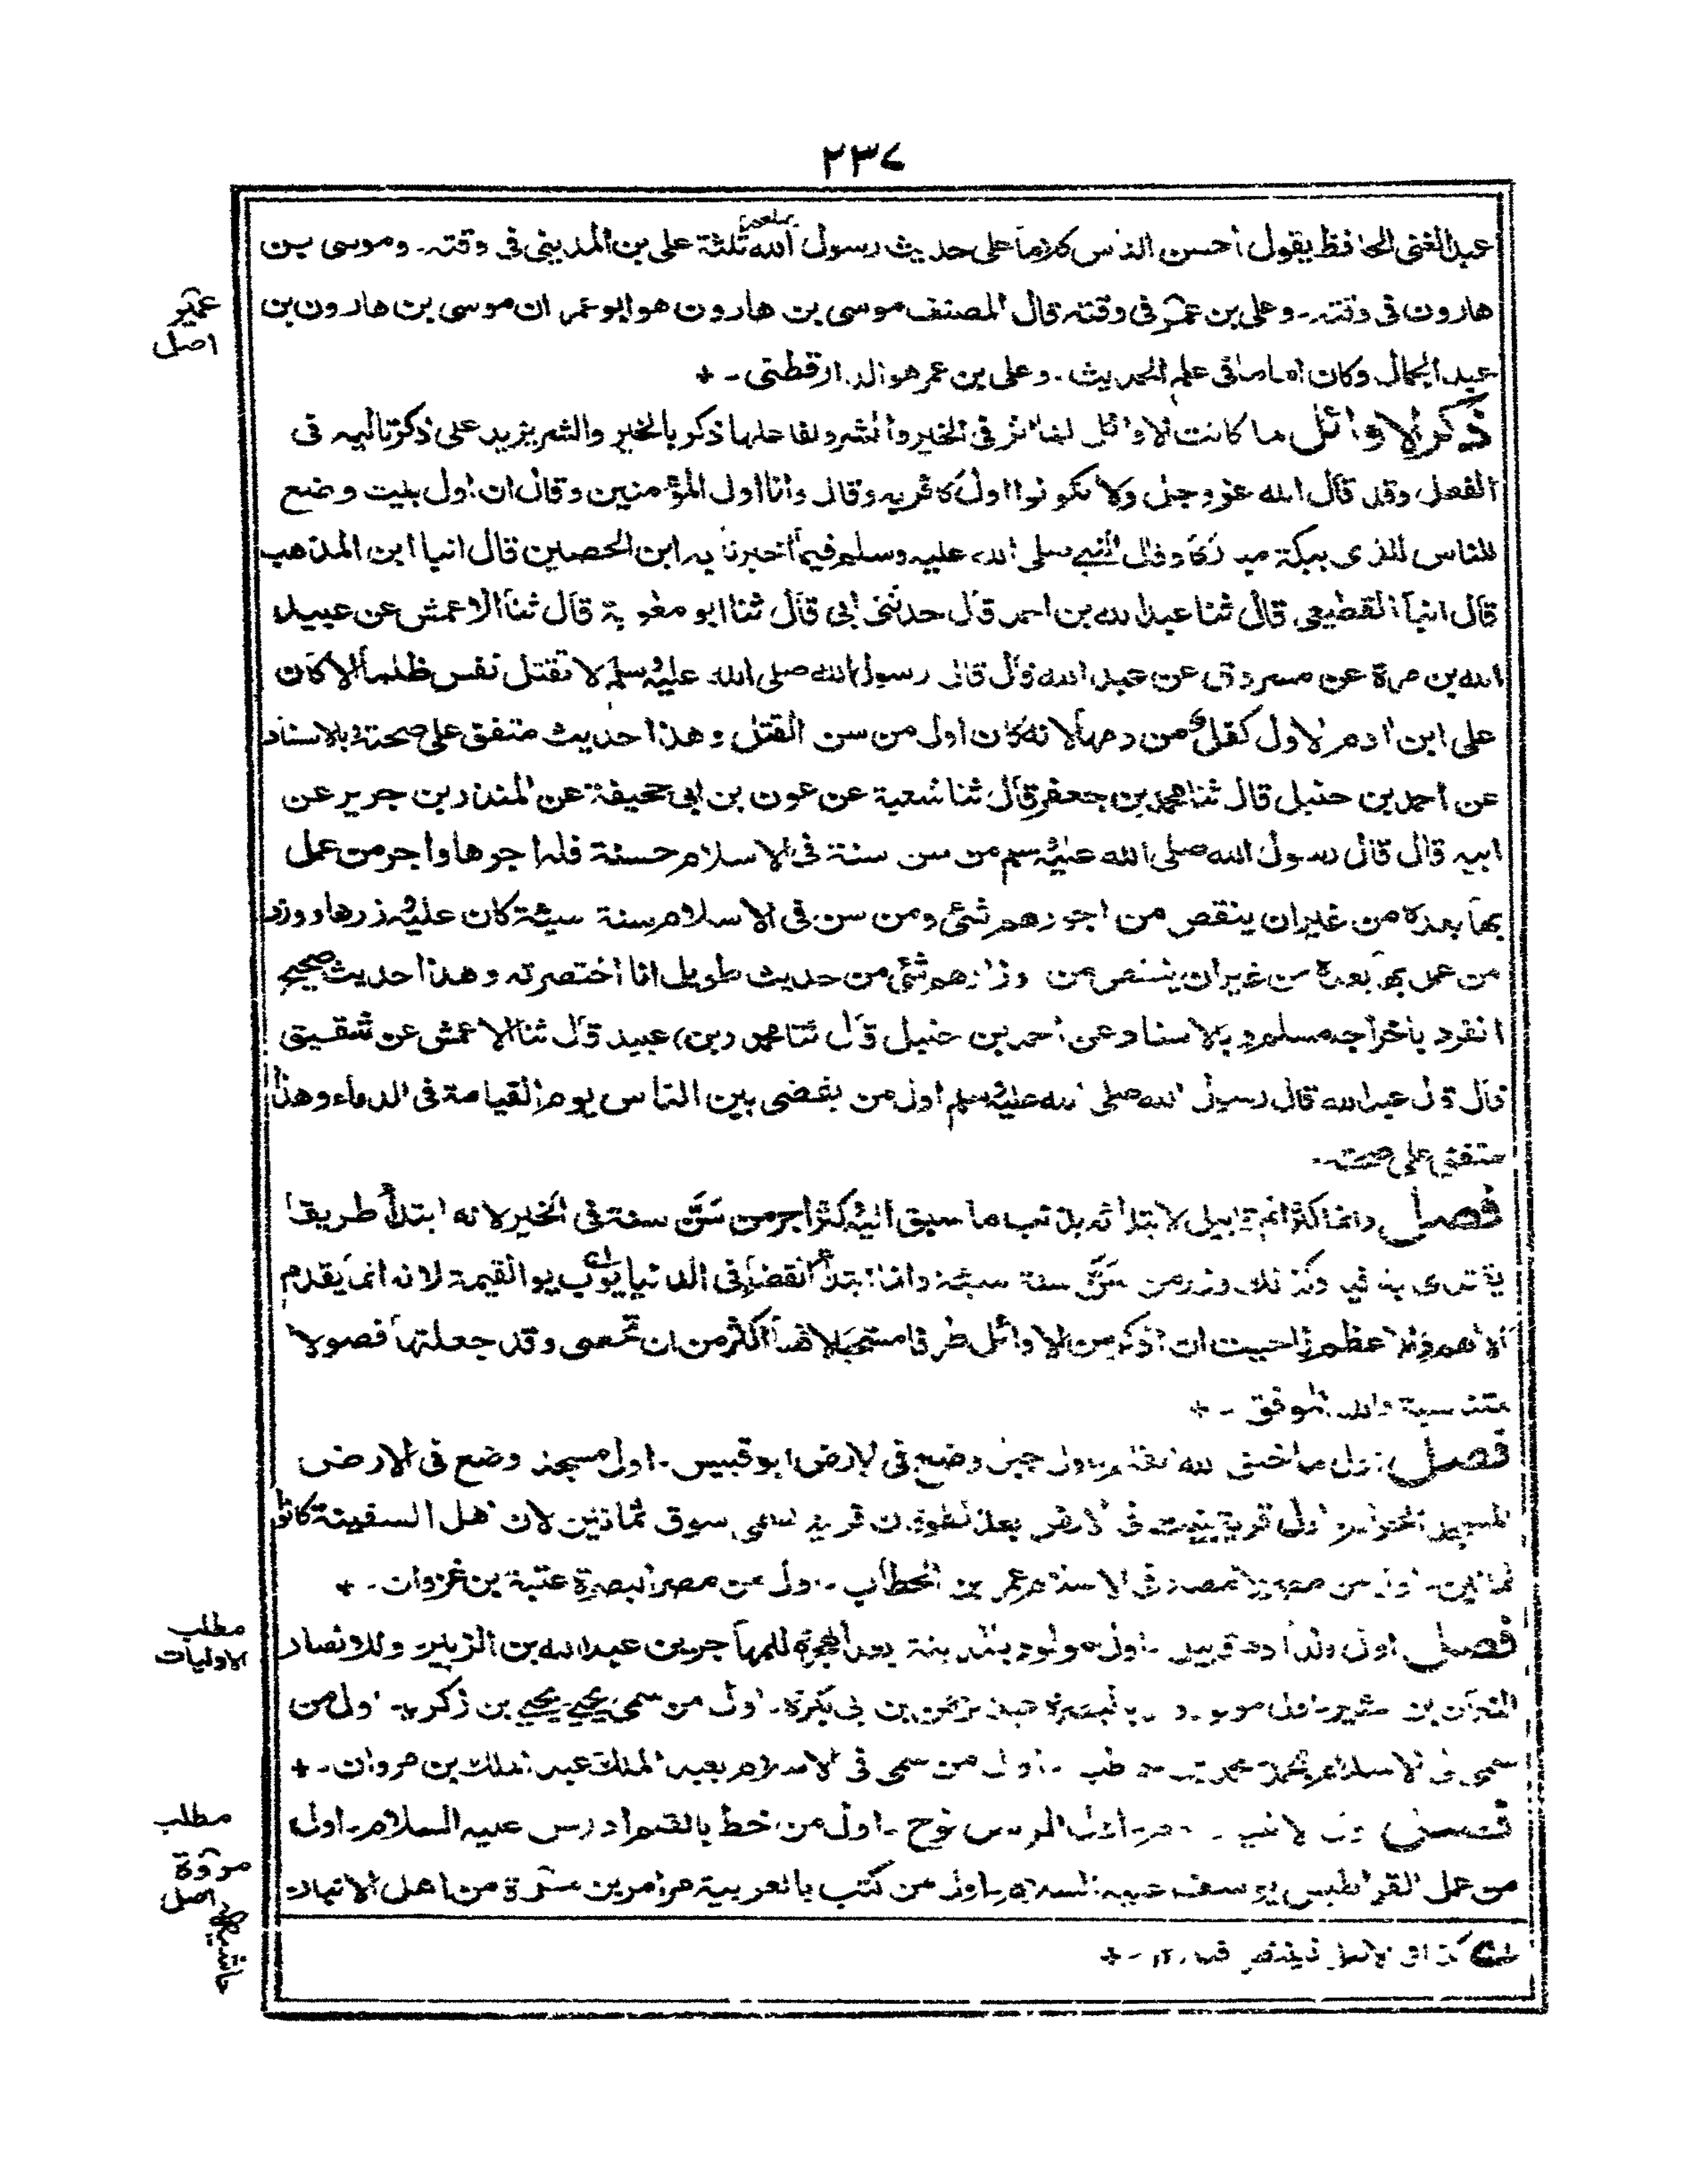 ٢٣٧
عبد الغنى الحافظ يقول احسن الناس كلاما على حديث رسول الله صلعم ثلثة على بن المدينى فى وقته ۔ وموسى بن
هارون فى وقته ۔ وعلى بن عمر فى وقته قال المصنف موسى بن هارون هو ابو عمران موسى بن هارون بن
عبد الجمال وكان اماما فى علم الحديث ۔ وعلى بن عمر هو الدارقطنى ۔ +
ذكر الاوائل لما كانت الاوائل لها اثر فى الخير والشر ولفاعلها ذكر بالخير والشر يزيد على ذكر تاليه فى
الفعل وقد قال الله عز وجل ولا تكونوا اول كافر به وقال وانا اول المؤمنين وقال ان اول بيت وضع
للناس للذى ببكة مباركا وقال النبى صلى الله عليه وسلم فيما اخبرنا به ابن الحصين قال انبا ابن المذهب
قال انبأ القطيعى قال ثنا عبد الله بن احمد قال حدثنى ابى قال ثنا ابو معوية قال ثنا الاعمش عن عبيد
الله بن مرة عن مسروق عن عبد الله قال قال رسول الله صلى الله عليه وسلم لا تقتل نفس ظلما الا كان
على ابن ادم الاول كفل من دمها لانه كان اول من سن القتل وهذا حديث متفق على صحته وبالاسناد
عن احمد بن حنبل قال ثنا محمد بن جعفر قال ثنا شعبة عن عون بن ابى جحيفة عن المنذر بن جرير عن
ابيه قال قال رسول الله صلى الله عليه وسلم من سن سنة فى الاسلام حسنة فله اجرها واجر من عمل
بها بعده من غير ان ينقص من اجورهم شئى ومن سن فى الاسلام سنة سيئة كان عليه وزرها ووزر
من عمل بها بعده من غير ان ينتقص من وزارهم شئى من حديث طويل انا اختصرته وهذا حديث صحيح
انفرد باخراجه مسلم وبالاسناد عن احمد بن حنبل قال ثنا محمد (بن) عبيد قال ثنا الاعمش عن شقيق
قال قال عبد الله قال رسول الله صلى الله عليه وسلم اول من يقضى بين الناس يوم القيامة فى الدماء وهذا
متفق على صحته ۔
فصل وانما كثر اثم قابيل لابتدائه بذنب ما سبق اليه كثر اجر من سن سنة فى الخير لانه ابتدأ طريقا
يقتدى به فيه وكذلك وزر من سن سنة سيئة وانما ابتدأ القضاء فى الدنيا يوم القيمة لانه انما يقدم
الاهم والاعظم فاحببت ان اذكر من الاوائل طرفا مستحبا لانها اكثر من ان تحصى وقد جعلتها فصولا
متناسبة والله الموفق ۔ +
فصل اول ما خلق الله القلم ۔ اول جبل وضع فى الارض ابو قبيس ۔ اول مسجد وضع فى الارض
المسجد الحرام ۔ اول قرية بنيت فى الارض بعد الطوفان قرية تسمى سوق ثمانين لان اهل السفينة كانوا
ثمانين ۔ اول من مصر الامصار فى الاسلام عمر بن الخطاب ۔ اول من مصر البصرة عتبة بن غزوان ۔ +
فصل اول ولد ادم قابيل ۔ اول مولود بالمدينة بعد الهجرة للمهاجرين عبد الله بن الزبير وللانصار
النعمان بن بشير ۔ اول مولود بالبصرة عبد الرحمن بن ابى بكرة ۔ اول من سمى يحيى يحيى بن زكريا ۔ اول من
سمى فى الاسلام بمحمد محمد بن حاطب ۔ اول من سمى فى الاسلام بعبد الملك عبد الملك بن مروان ۔ +
فصل اول الانبياء ادم ۔ اول المرسلين نوح ۔ اول من خط بالقلم ادريس عليه السلام ۔ اول
من عمل القراطيس يوسف عليه السلام ۔ اول من كتب بالعربية مرامر بن مرة من اهل الانبار
كذا فى الاصل
عمير
اصل
مطلب
الاوليات
مطلب
مروة
اصل
حاشيه